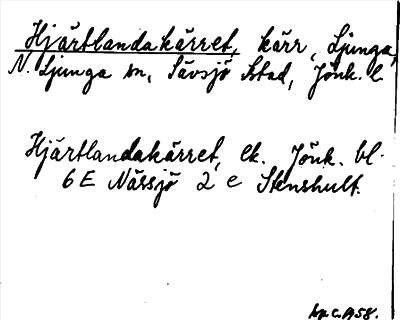 Hjärtlandakärret, kärr, Ljunga,
N. Ljunga sn, Sävsjö stad, Jönk. l.
Hjärtlandakärret, ek. Jönk. bl.
6 E Nässjö 2 e Stenshult.
C. A 58.